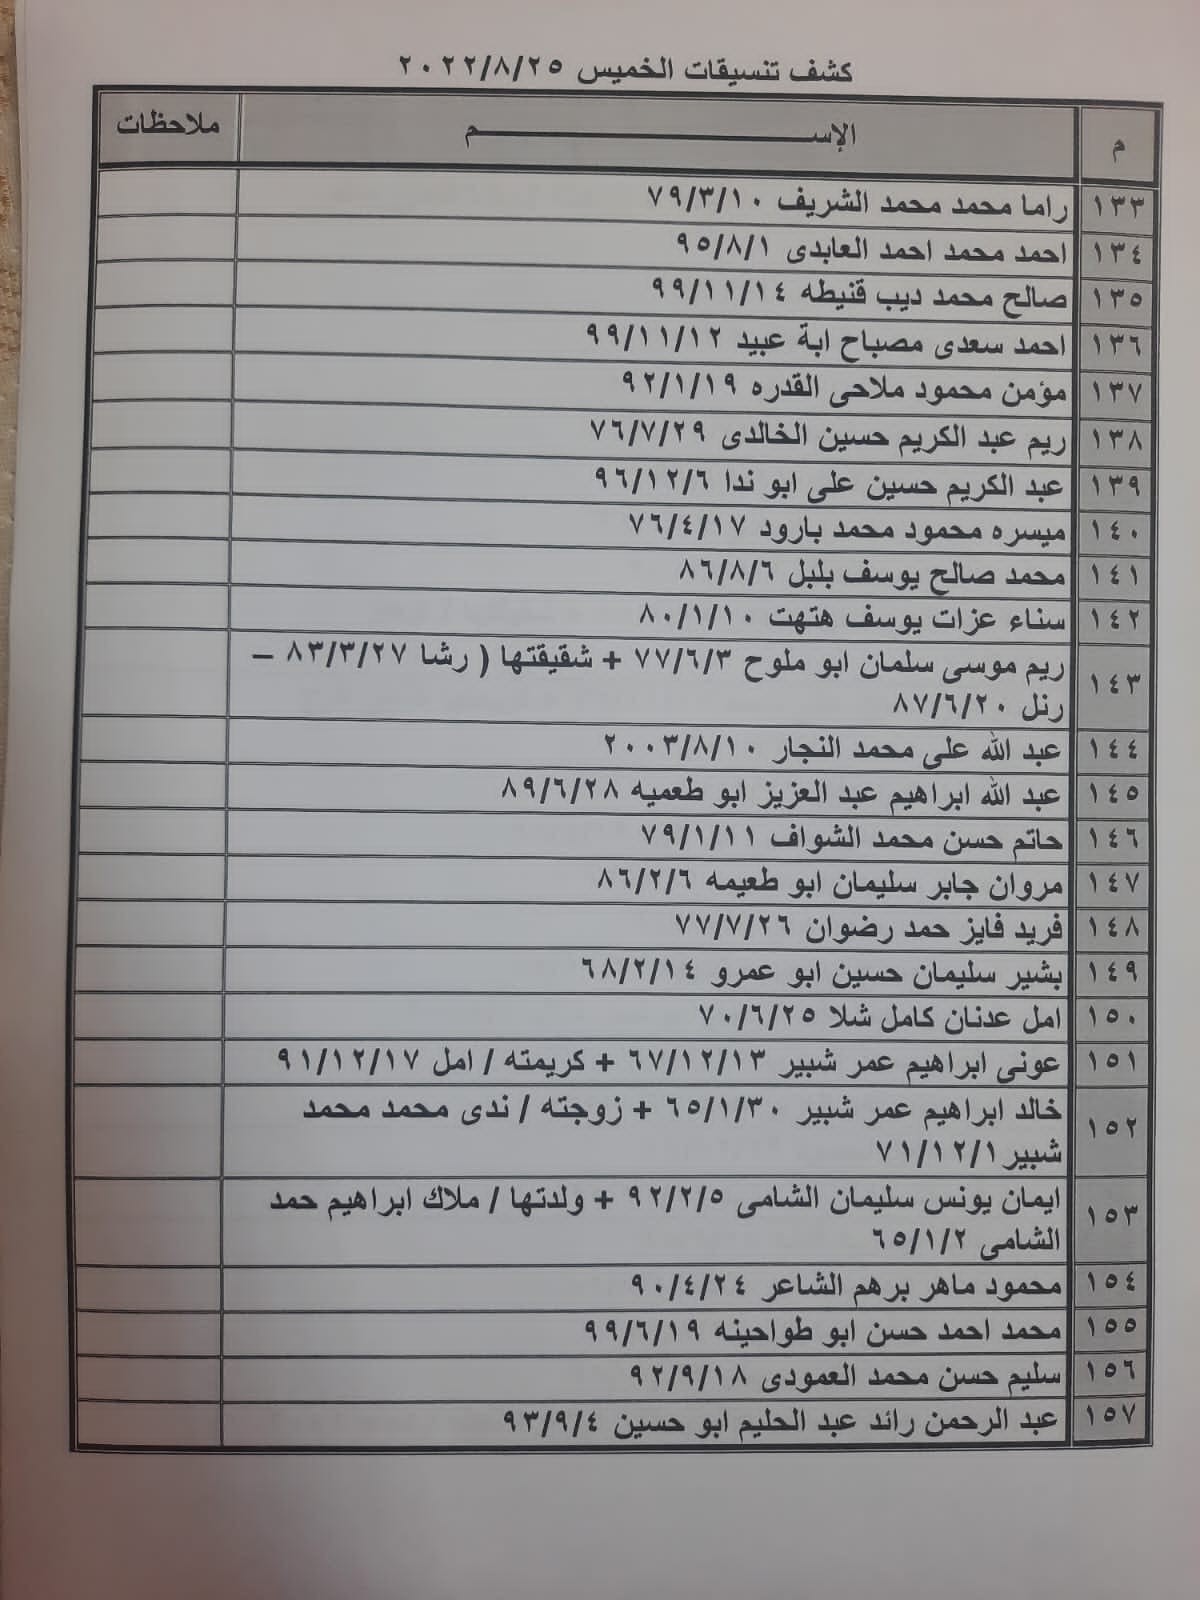 كشف تنسيقات الخميس ٢٠٢٢/٨/٢٥
م الإســــــــم ملاحظات
١٣٣ راما محمد محمد الشريف ٧٩/٣/١٠
١٣٤ احمد محمد احمد العابدى ٩٥/٨/١
١٣٥ صالح محمد ديب قنيطه ٩٩/١١/١٤
١٣٦ احمد سعدى مصباح ابة عبيد ٩٩/١١/١٢
١٣٧ مؤمن محمود ملاحى القدره ٩٢/١/١٩
١٣٨ ريم عبد الكريم حسين الخالدى ٧٦/٧/٢٩
١٣٩ عبد الكريم حسين على ابو ندا ٩٦/١٢/٦
١٤٠ ميسره محمود محمد بارود ٧٦/٤/١٧
١٤١ محمد صالح يوسف بلبل ٨٦/٨/٦
١٤٢ سناء عزات يوسف هتهت ٨٠/١/١٠
١٤٣ ريم موسى سلمان ابو ملوح ٧٧/٦/٣ + شقيقتها ( رشا ٨٣/٣/٢٧ –
رنل ٨٧/٦/٢٠
١٤٤ عبد الله على محمد النجار ٢٠٠٣/٨/١٠
١٤٥ عبد الله ابراهيم عبد العزيز ابو طعميه ٨٩/٦/٢٨
١٤٦ حاتم حسن محمد الشواف ٧٩/١/١١
١٤٧ مروان جابر سليمان ابو طعيمه ٨٦/٢/٦
١٤٨ فريد فايز حمد رضوان ٧٧/٧/٢٦
١٤٩ بشير سليمان حسين ابو عمرو ٦٨/٢/١٤
١٥٠ امل عدنان كامل شلا ٧٠/٦/٢٥
١٥١ عونى ابراهيم عمر شبير ٦٧/١٢/١٣ + كريمته / امل ٩١/١٢/١٧
١٥٢ خالد ابراهيم عمر شبير ٦٥/١/٣٠ + زوجته / ندى محمد محمد
شبير ٧١/١٢/١
١٥٣ ايمان يونس سليمان الشامى ٩٢/٢/٥ + ولدتها / ملاك ابراهيم حمد
الشامى ٦٥/١/٢
١٥٤ محمود ماهر برهم الشاعر ٩٠/٤/٢٤
١٥٥ محمد احمد حسن ابو طواحينه ٩٩/٦/١٩
١٥٦ سليم حسن محمد العمودى ٩٢/٩/١٨
١٥٧ عبد الرحمن رائد عبد الحليم ابو حسين ٩٣/٩/٤